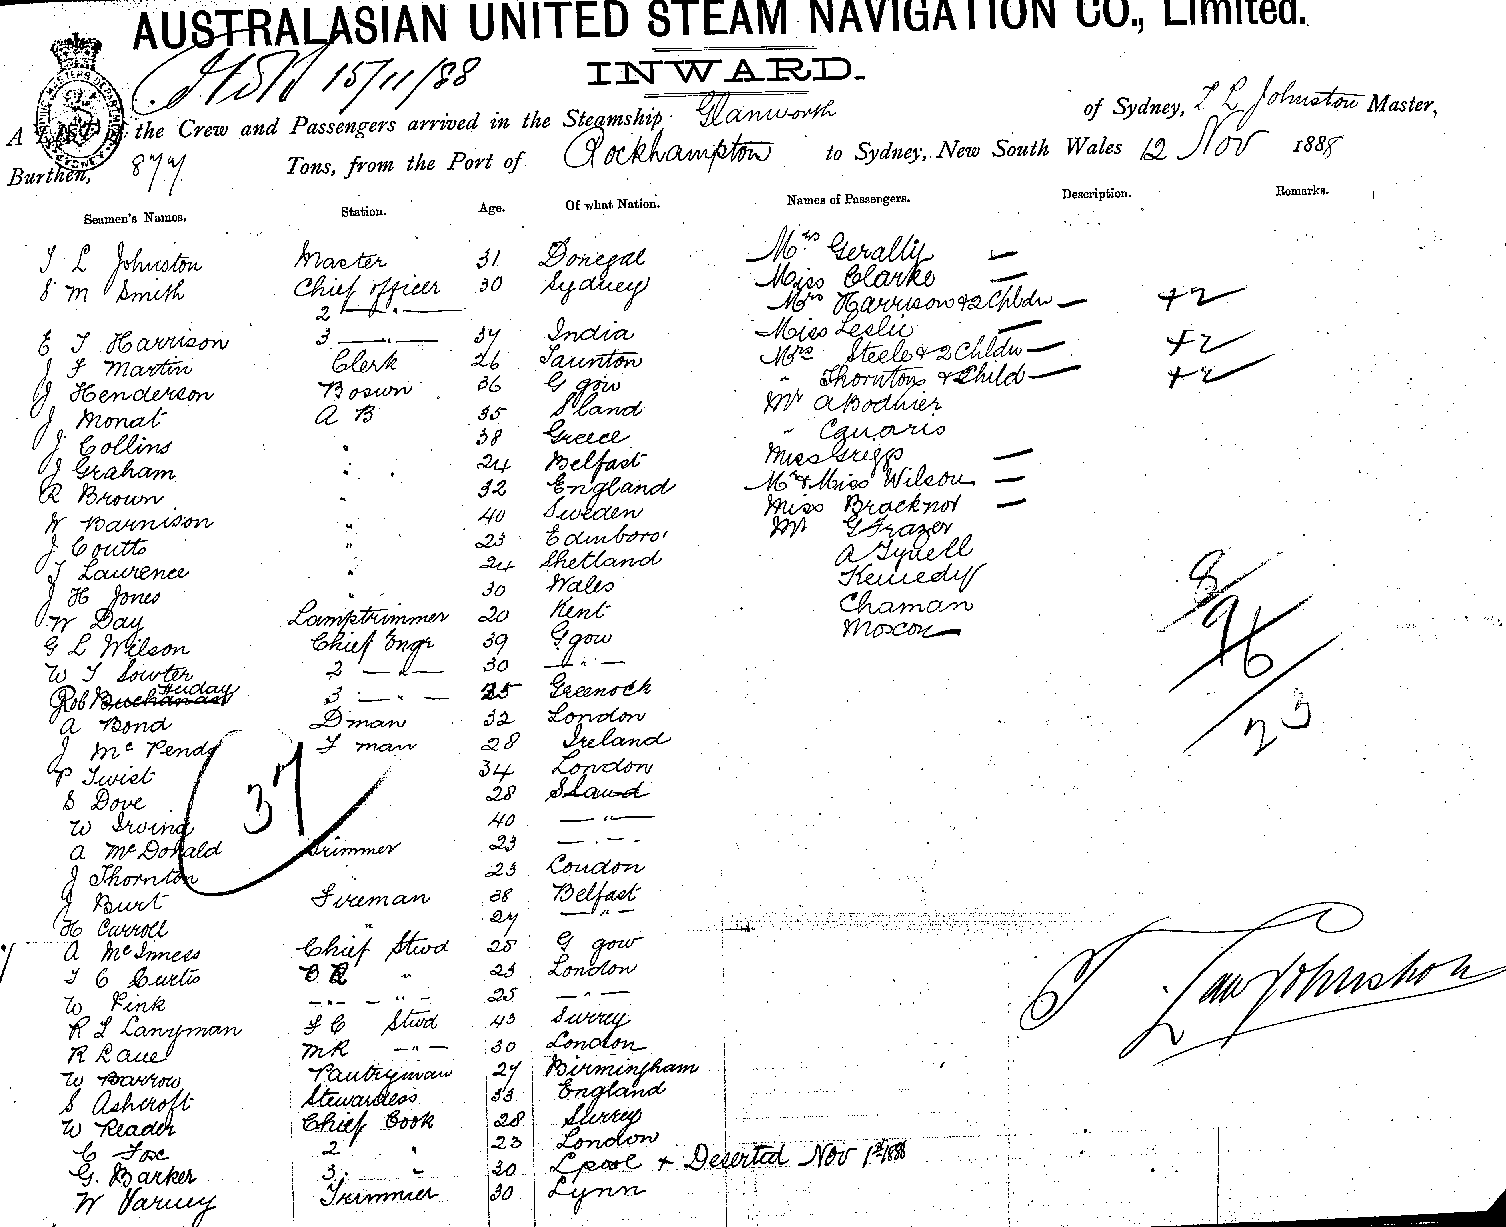 AUSTRALASIAN UNITED STEAM NAVIGATION CO., Limited.
15/11/88 INWARD.
A LIST of the Crew and Passengers arrived in the Steamship Glanworth of Sydney, T L Johnston Master,
Burthen, 877 Tons, from the Port of Rockhampton to Sydney, New South Wales 12 Nov 1888
Seamen's Names. Station. Age. Of what Nation. Names of Passengers. Description. Remarks.
T L Johnston Master 31 Donegal Mrs Gerally —
S M Smith Chief officer 30 Sydney Miss Clarke —
2 — " — Mrs Harrison & 2 Chldn — +2
E T Harrison 3 — " — 37 India Miss Leslie —
J F Martin Clerk 26 Taunton Mrs Steele & 2 Chldn — +2
J Henderson Bosun 36 G gow " Thornton & Child — +2
J Monat A B 35 S land Mr A Bodhier
J Collins " 38 Greece " Canaris
J Graham " 24 Belfast Miss Griggs —
R Brown " 32 England Mr & Miss Wilson —
W Barnison " 40 Sweden Miss Bracknor —
J Coutts " 23 Edinboro' Mr G Frazer
T Laurence " 24 Shetland A Tynell
J H Jones " 30 Wales Kennedy
W Day Lamptrimmer 20 Kent Chaman
G L Wilson Chief Engr 39 G gow Moscou —
W T Sowter 2 — " — 30 — " —
Rob Buchanan Friday 3 — " — 25 Greenock
A Bond D man 32 London
J Mc Pendy F man 28 Ireland
P Twist 34 London
S Dove 28 S land
W Irvine 40 — " —
A McDonald Trimmer 23 — " —
J Thornton 23 London
J Burt Fireman 38 Belfast
H Carroll " 27 — " —
A McInness Chief Stwd 25 G gow
T C Curtis " 23 London
W Pink — " — " — 25 — " —
R L Lanyman F C Stwd 43 Surrey
R Lane M R — " — 30 London
W Barrow Pantryman 27 Birmingham
S Ashcroft Stewardess 33 England
W Reader Chief Cook 28 Surrey
C Fox 2 " 23 London
G. Barker 3 " 30 Lpool + Deserted Nov 1st 1888
W Varney Trimmer 30 Lynn
37
8
9
6
23
T Law Johnston